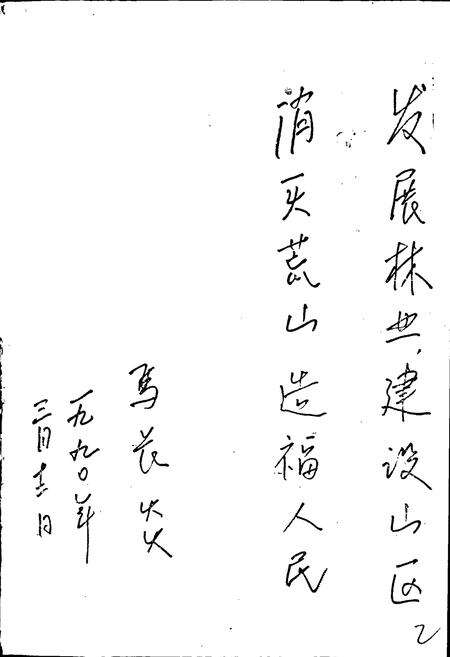 发展林业，建设山区
消灭荒山造福人民
马长炎
一九九〇年
三月十二日